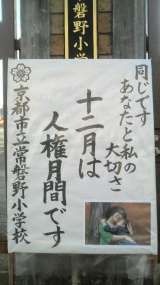 常磐野小学
同じです
あなたと私の
大切さ
十二月は
人権月間です
京都市立常磐野小学校